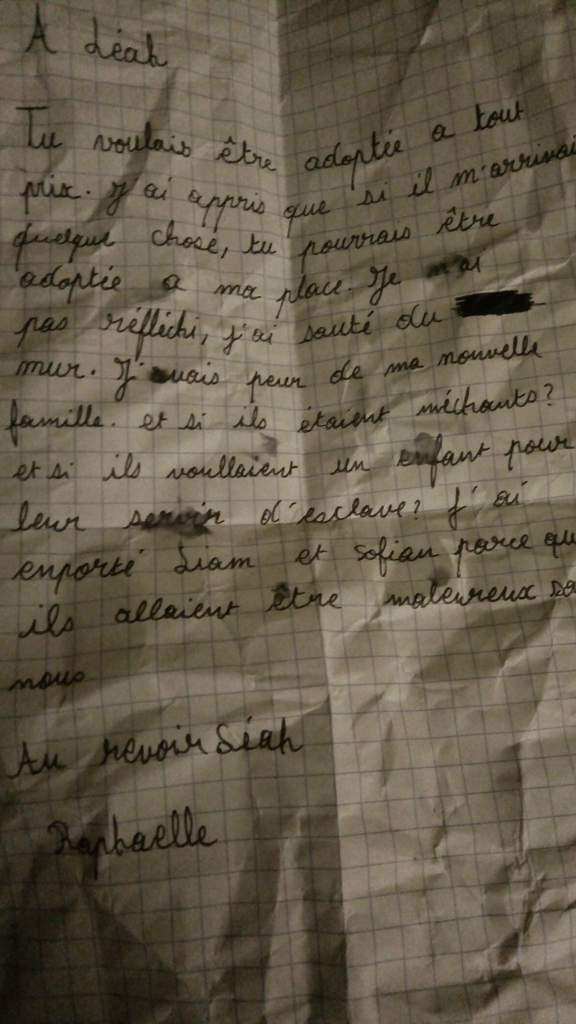 A Léah
Tu voulais être adoptée a tout
prix. J'ai appris que si il m'arrivai
quelque chose, tu pourrais être
adoptée a ma place. Je n'ai
pas réfléchi, j'ai sauté du
mur. J'avais peur de ma nouvelle
famille. et si ils étaient méchants?
et si ils voullaient un enfant pour
leur servir d'esclave? J'ai
enporté Liam et Sofian parce qu
ils allaient être maleureux sa
nous
Au revoir Léah
Raphaelle